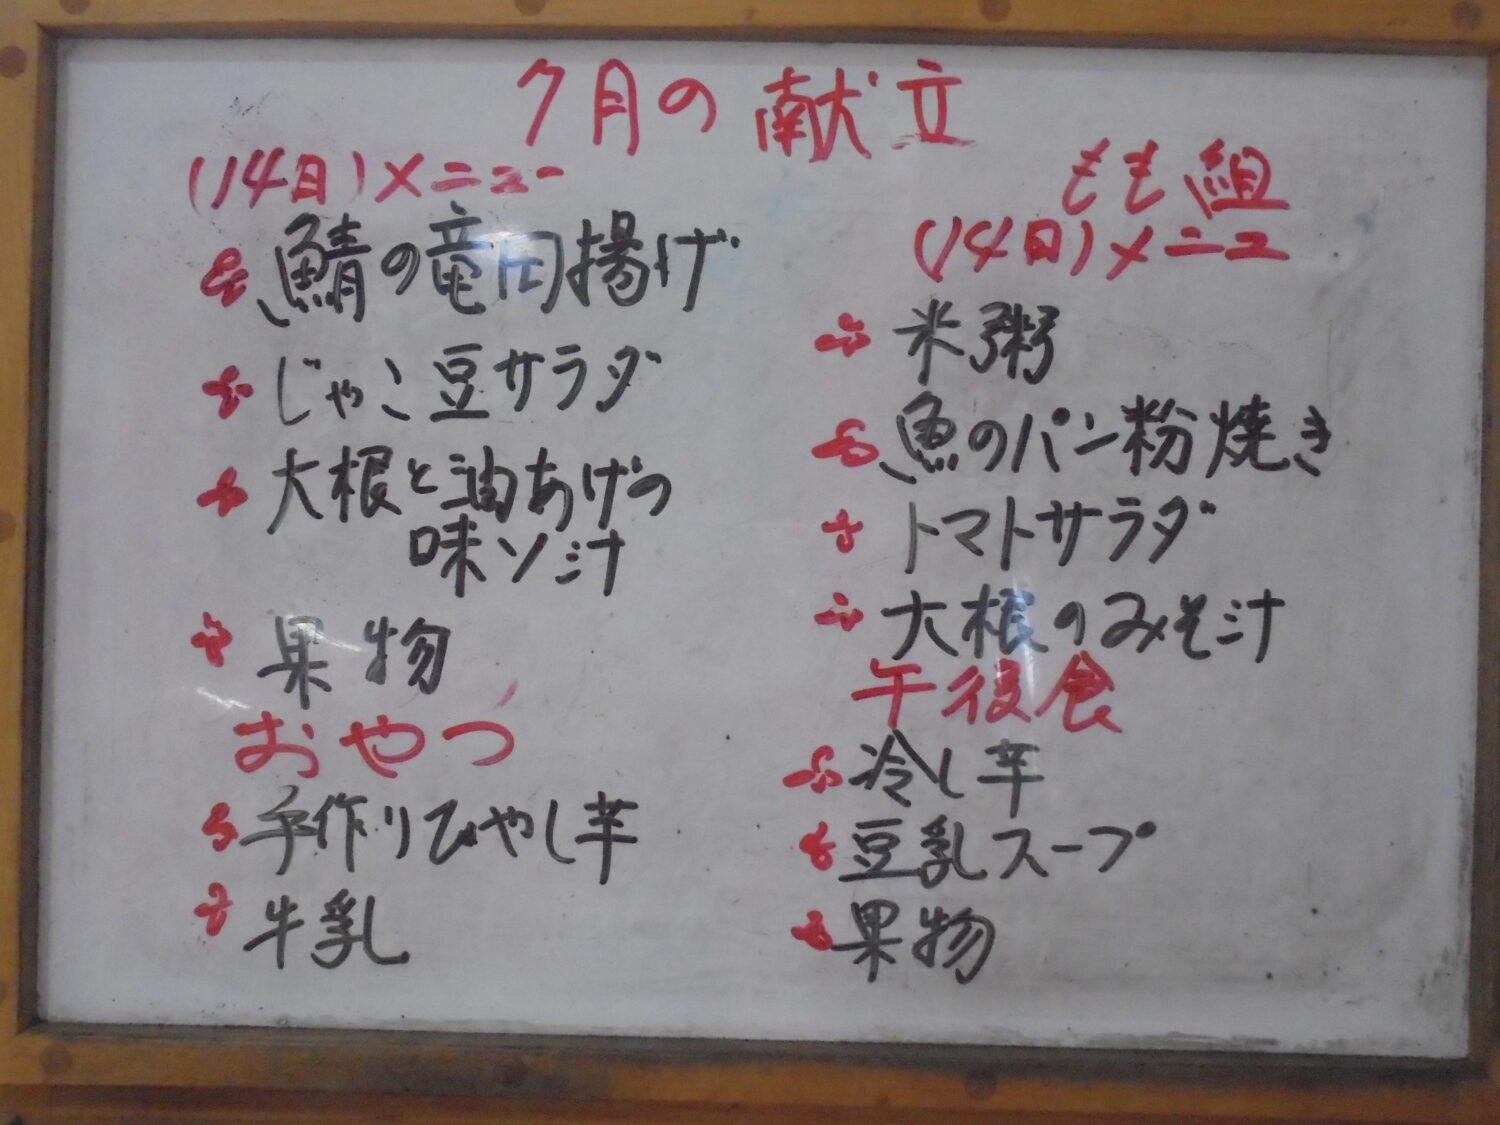 7月の献立
(14日)メニュー
鯖の竜田揚げ
じゃこ豆サラダ
大根と油あげの
味ソ汁
果物
おやつ
手作りひやし芋
牛乳
もも組
(14日)メニュー
米粥
魚のパン粉焼き
トマトサラダ
大根のみそ汁
午後食
冷し芋
豆乳スープ
果物